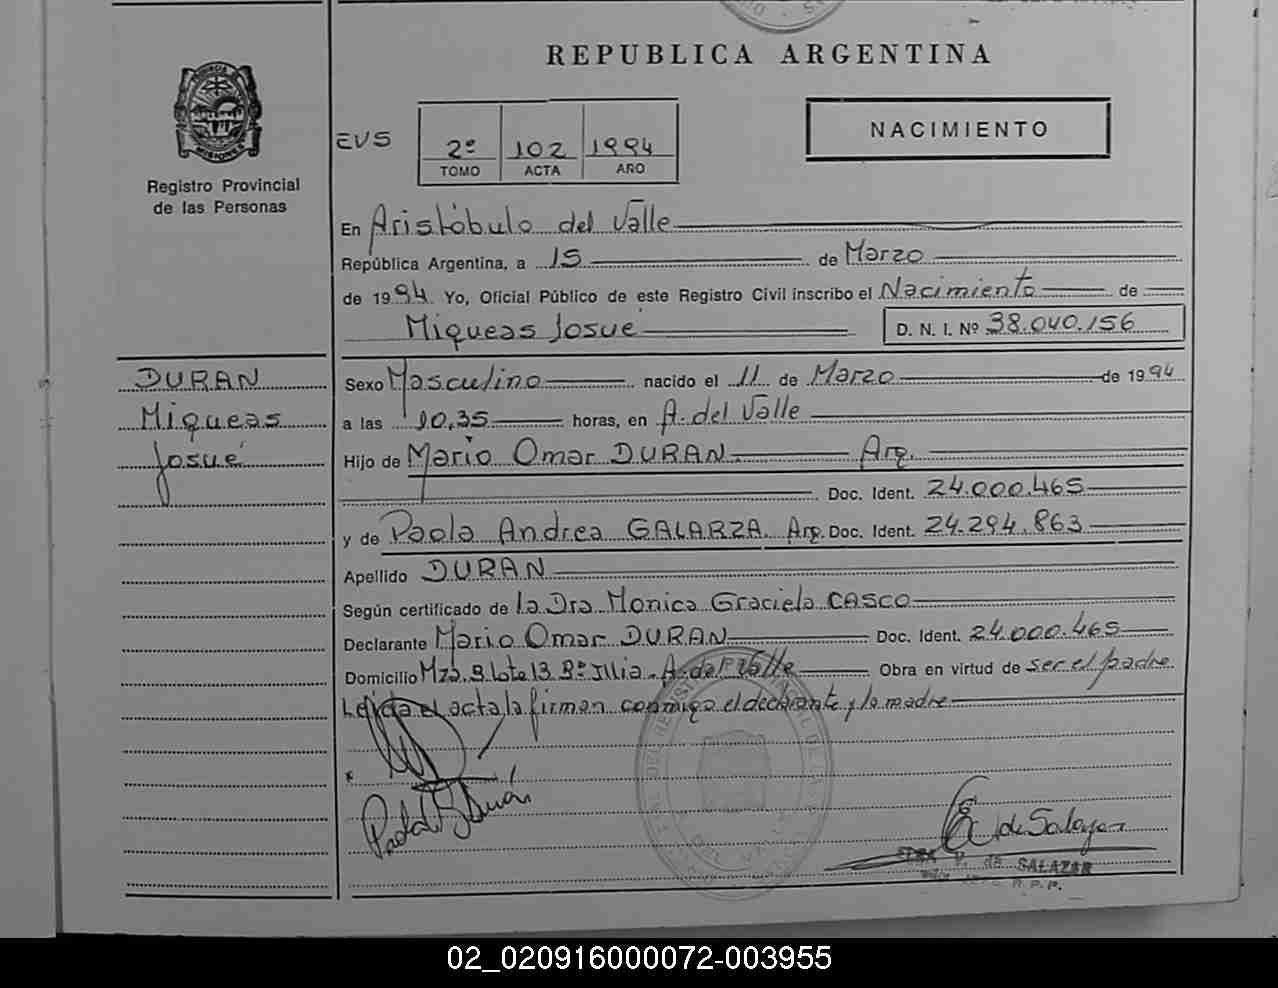 REPUBLICA ARGENTINA
PROVINCIA DE
MISIONES
Registro Provincial
de las Personas
EVS
2º 102 1994
TOMO ACTA AÑO
NACIMIENTO
En Aristóbulo del Valle
República Argentina, a 15 de Marzo
de 1994. Yo, Oficial Público de este Registro Civil inscribo el Nacimiento de
Miqueas Josué D. N. I. Nº 38.040.156
DURAN
Miqueas
Josué
Sexo Masculino nacido el 11 de Marzo de 1994
a las 10,35 horas, en A. del Valle
Hijo de Mario Omar DURAN. Arg.
Doc. Ident. 24.000.465
y de Paola Andrea GALARZA. Arg. Doc. Ident. 24.294.863
Apellido DURAN
Según certificado de la Dra Monica Graciela CASCO
Declarante Mario Omar DURAN Doc. Ident. 24.000.465
Domicilio Mza. 9 Lote 13 Bº Illia. A. del Valle Obra en virtud de ser el padre
Leida el acta la firman conmigo el declarante y la madre
Paola Durán
de Salazar
de SALAZAR
R.P.P.
02_020916000072-003955